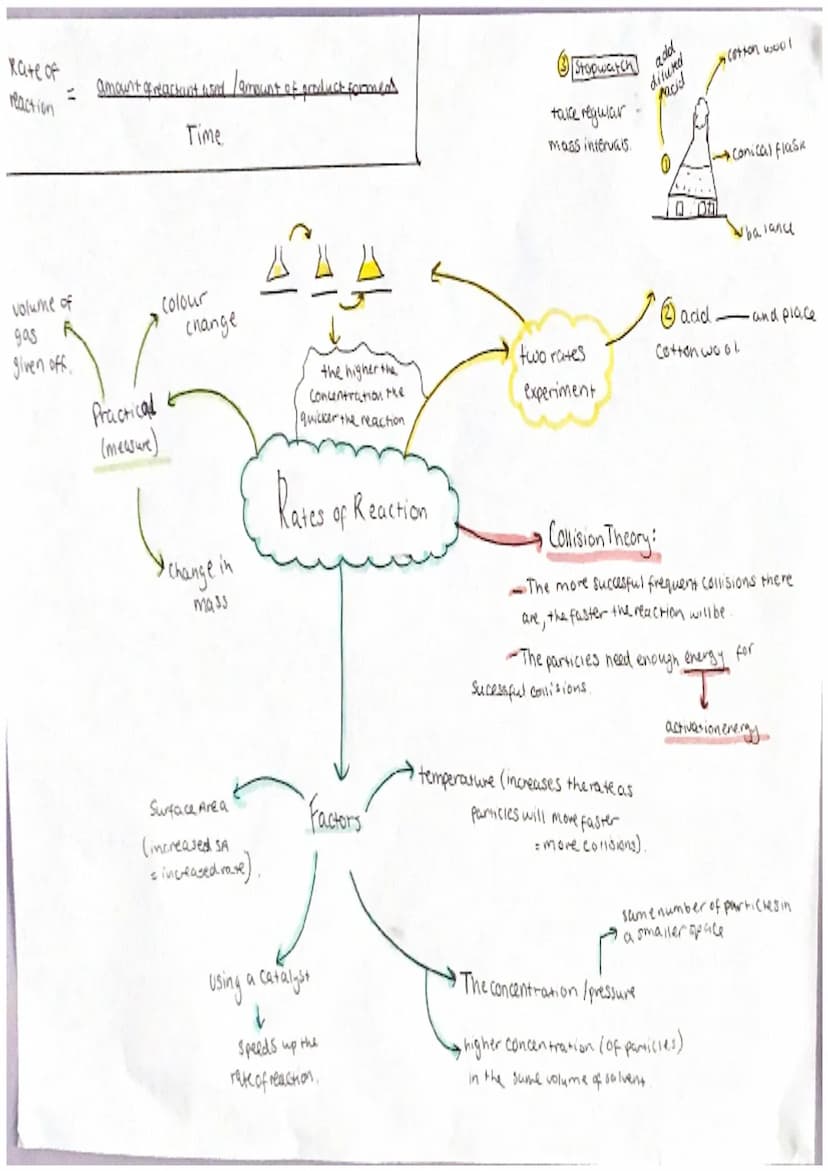 Rate of
reaction
=
amount of reactant used / amount of product formed
Time
③ Stopwatch
take regular
mass intervals.
add
diluted
acid
cotton wool
①
conical flask
balance
② add —— and place
cotton wool.
two rates
experiment
the higher the
concentration the
quicker the reaction
volume of
gas
given off.
colour
change
Practical
(measure)
change in
mass
Rates of Reaction
Collision Theory:
- The more succesful frequent collisions there
are, the faster the reaction will be.
- The particles need enough energy for
sucessful collisions.
activation energy
Factors
Surface Area
(increased SA
= increased rate).
temperature (increases the rate as
particles will move faster
= more collisions).
using a catalyst
speeds up the
rate of reaction.
The concentration / pressure
same number of particles in
a smaller space
higher concentration (of particles)
in the same volume of solvent